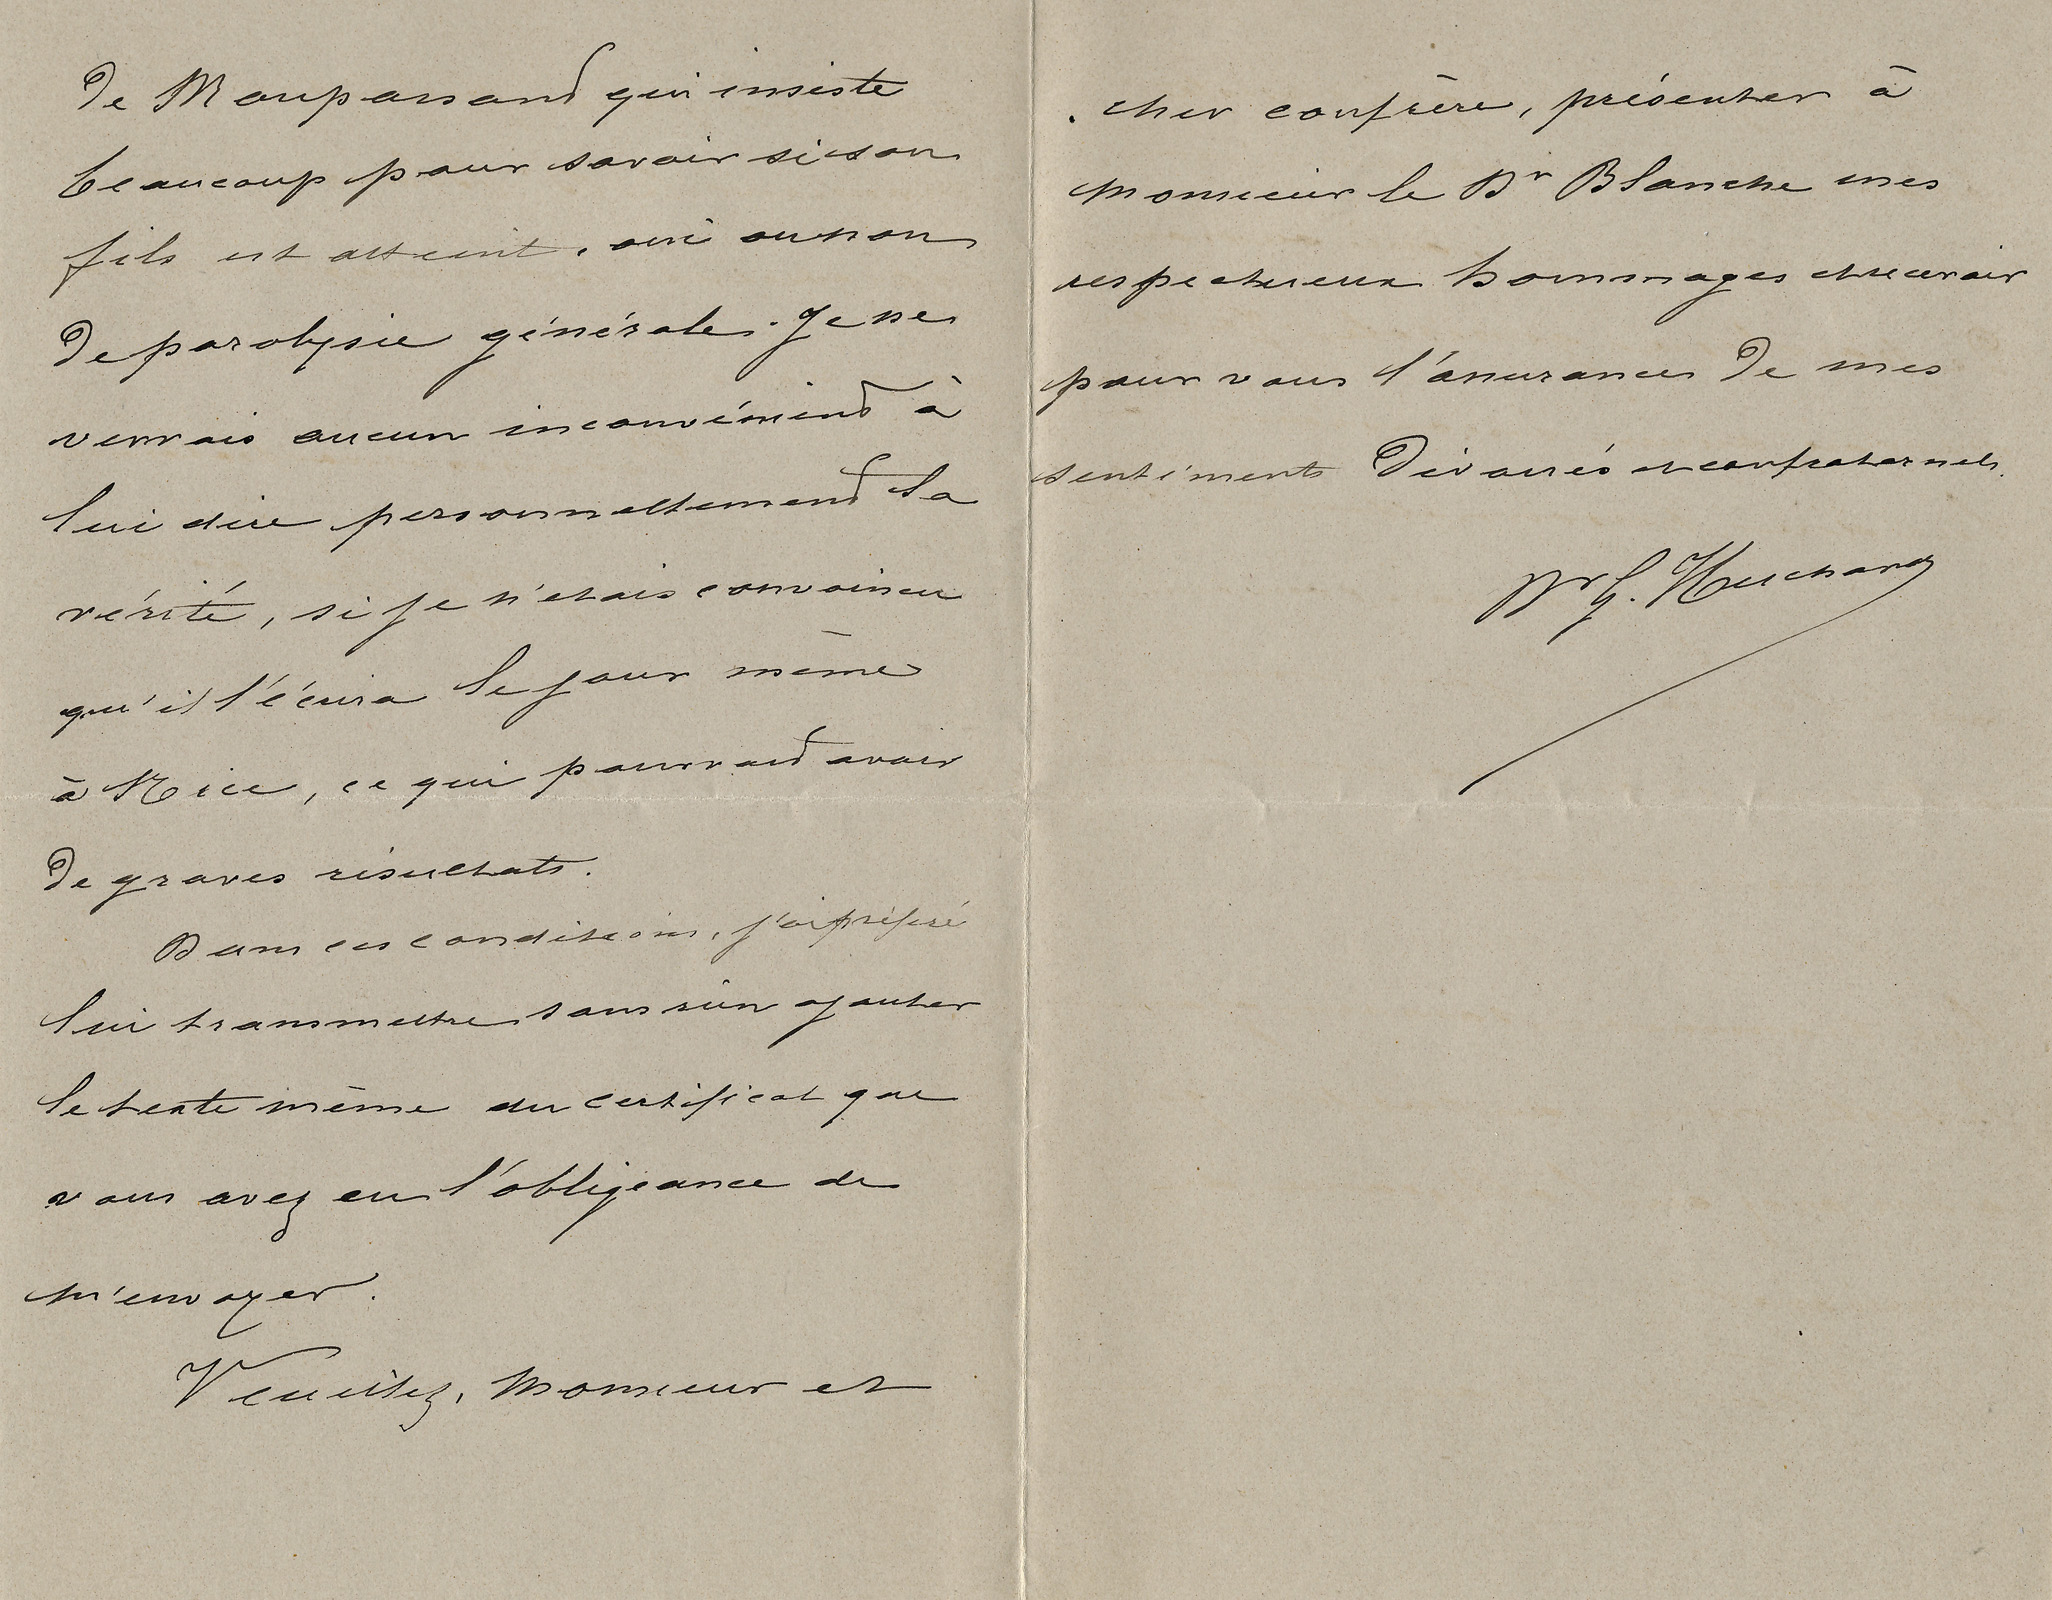 de Maupassant qui insiste
beaucoup pour savoir si son
fils est atteint, oui ou non
de paralysie générale. Je ne
verrais aucun inconvénient à
lui dire personnellement la
vérité, si je n'étais convaincu
qu'il l'écrira le jour même
à Nice, ce qui pourrait avoir
de graves résultats.
Dans ces conditions, j'ai préféré
lui transmettre sans rien ajouter
le texte même du certificat que
vous avez eu l'obligeance de
m'envoyer.
Veuillez, Monsieur et
cher confrère, présenter à
Monsieur le Dr Blanche mes
respectueux hommages et recevoir
pour vous l'assurance de mes
sentiments dévoués et confraternels.
Dr G. Huchard